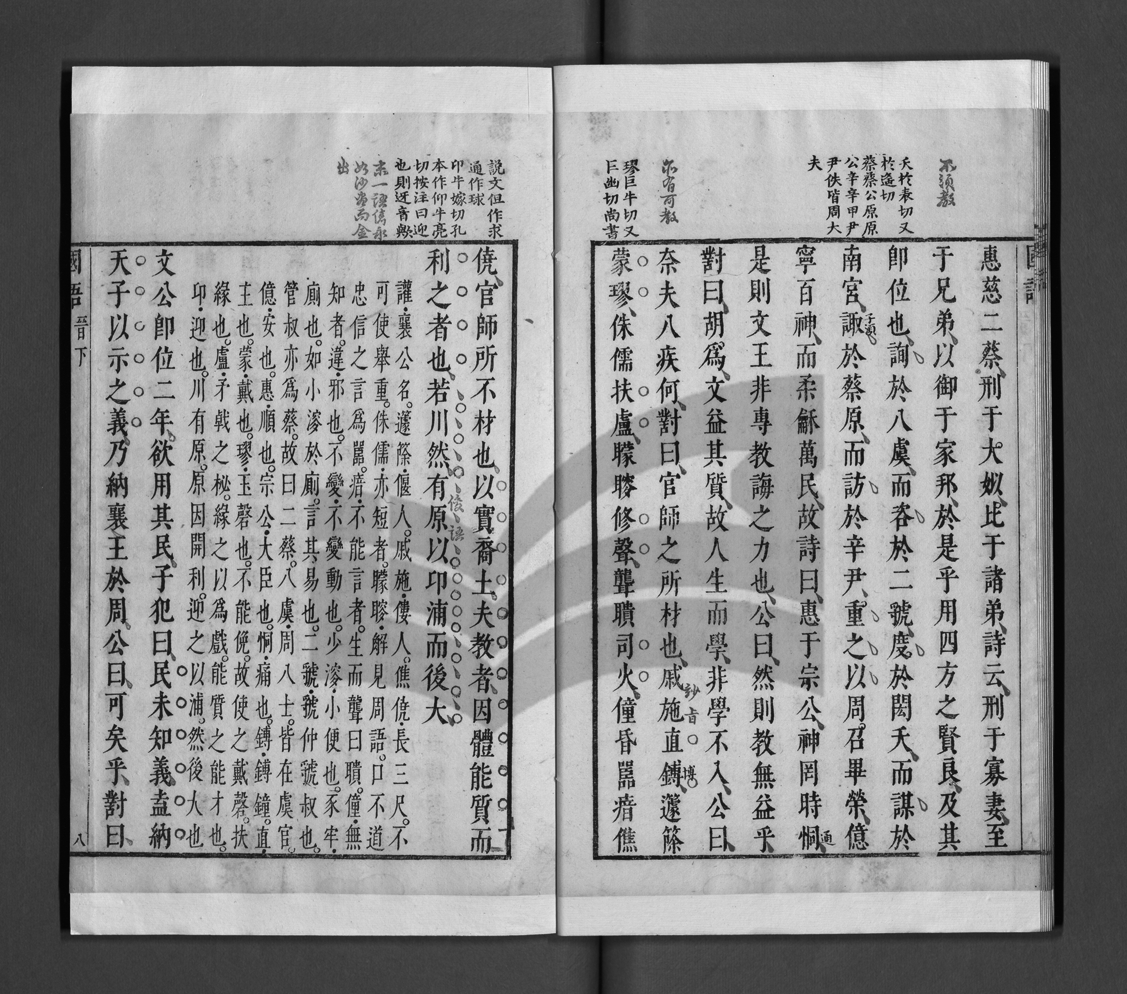 不須教
夭於表切又
於遙切
蔡蔡公原原
公辛辛甲尹
尹佚皆周大
夫
不有可教
璆巨牛切又
巨幽切尚書
惠慈二蔡刑于大姒比于諸弟詩云刑于寡妻至
于兄弟以御于家邦於是乎用四方之賢良及其
卽位也詢於八虞而咨於二虢度於閎夭而謀於
南宮諏於蔡原而訪於辛尹重之以周召畢榮億
寧百神而柔龢萬民故詩曰惠于宗公神罔時恫
是則文王非專教誨之力也公曰然則教無益乎
對曰胡爲文益其質故人生而學非學不入公曰
奈夫八疾何對曰官師之所材也戚施直鎛蘧篨
蒙璆侏儒扶盧矇瞍修聲聾聵司火僮昏嚚瘖僬
說文但作求
通作球
卬牛嫁切孔
本作仰牛亮
切按注曰迎
也則迓音歟
末一語儁永
如沙盡而金
出
僥官師所不材也以實裔土夫教者因體能質而
利之者也若川然有原以卬浦而後大
讙襄公名蘧篨偃人戚施僂人僬僥長三尺不
可使舉重侏儒亦短者矇瞍解見周語口不道
忠信之言爲嚚瘖不能言者生而聾曰聵僮無
知者違邪也不變不變動也少溲小便也豕牢
廁也如小溲於廁言其易也二虢虢仲虢叔也
管叔亦爲蔡故曰二蔡八虞周八士皆在虞官
億安也惠順也宗公大臣也恫痛也鎛鎛鐘直
主也蒙戴也璆玉磬也不能俛故使之戴磬扶
緣也盧矛戟之柲緣之以爲戲能質之能才也
卬迎也川有原原因開利迎之以浦然後大也
文公卽位二年欲用其民子犯曰民未知義盍納
天子以示之義乃納襄王於周公曰可矣乎對曰
國語 晉下 八